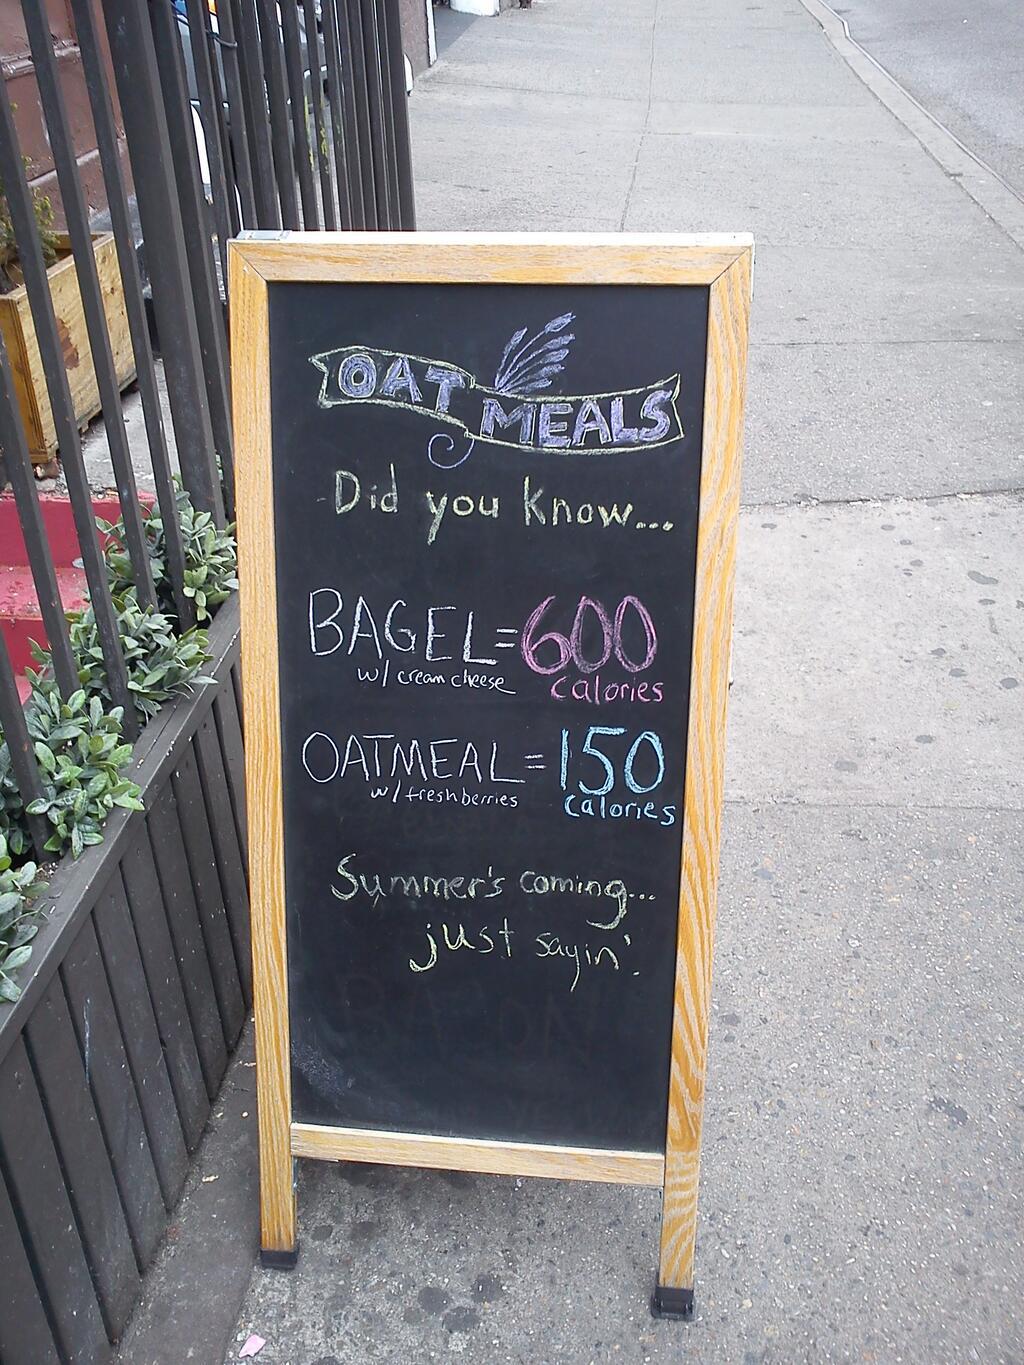 OAT MEALS
Did you know...
BAGEL = 600
w/ cream cheese calories
OATMEAL = 150
w/ fresh berries calories
Summer's coming...
just sayin'.
BACON